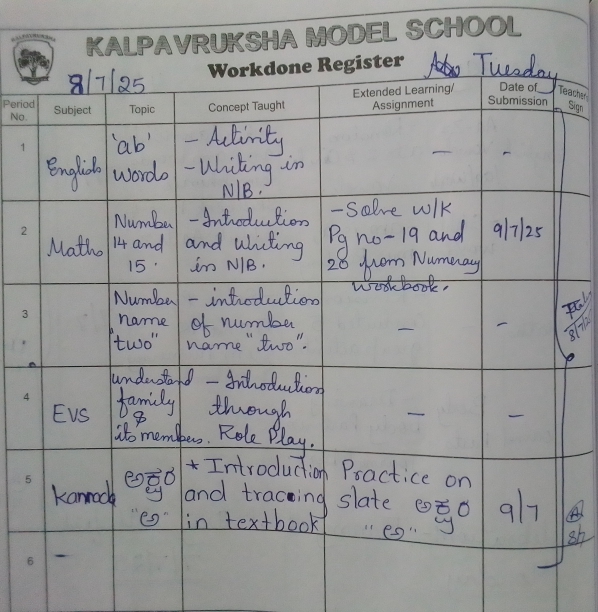 KALPAVRUKSHA
KALPAVRUKSHA MODEL SCHOOL
Workdone Register
8/7/25
Tuesday
Period No. Subject Topic Concept Taught Extended Learning/ Assignment Date of Submission Teacher's Sign
1 English 'ab' words - Activity - Writing in N/B. - -
2 Maths Number 14 and 15. - Introduction and writing in N/B. - Solve W/K Pg no-19 and 20 from Numeracy workbook. 9/7/25
3 Number name "two" - introduction of number name "two". - - 8/7/25
4 EVS understand family & its members. - Introduction through Role Play. - -
5 Kannada ಅಕ್ಷರ "ಅ" * Introduction and tracing in textbook Practice on slate ಅಕ್ಷರ "ಅ" 9/7 8/7
6 -